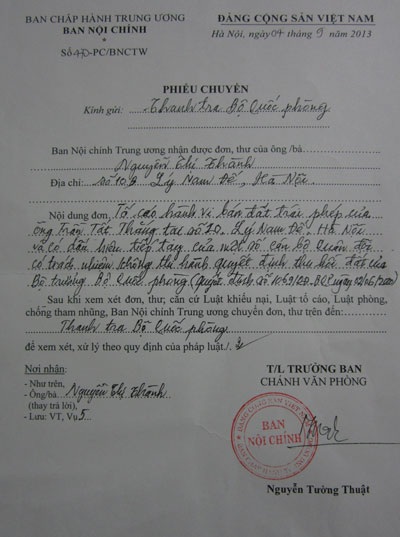 BAN CHẤP HÀNH TRUNG ƯƠNG
BAN NỘI CHÍNH
*
Số -PC/BNCTW
ĐẢNG CỘNG SẢN VIỆT NAM
Hà Nội, ngày 04 tháng 9 năm 2013
PHIẾU CHUYỂN
Kính gửi: Thanh tra Bộ Quốc phòng
Ban Nội chính Trung ương nhận được đơn, thư của ông/bà
Nguyễn Thị Thành
Địa chỉ: Số 10B Lý Nam Đế, Hà Nội
Nội dung đơn, Tố cáo hành vi bán đất trái phép của
Ông Trần Tất Thắng tại số Lý Nam Đế, Hà Nội
và có dấu hiệu tiếp tay của một số cán bộ Quân đội
có trách nhiệm không thi hành quyết định thu hồi đất của
Bộ trưởng Bộ Quốc phòng (Quyết định số ngày
Sau khi xem xét đơn, thư, căn cứ Luật khiếu nại, Luật tố cáo, Luật phòng,
chống tham nhũng, Ban Nội chính Trung ương chuyển đơn, thư trên đến:
Thanh tra Bộ Quốc phòng
để xem xét, xử lý theo quy định của pháp luật./.
Nơi nhận:
- Như trên,
- Ông/bà Nguyễn Thị Thành
(thay trả lời),
- Lưu: VT, Vụ 5
T/L TRƯỞNG BAN
CHÁNH VĂN PHÒNG
BAN
NỘI CHÍNH
Nguyễn Tường Thuật